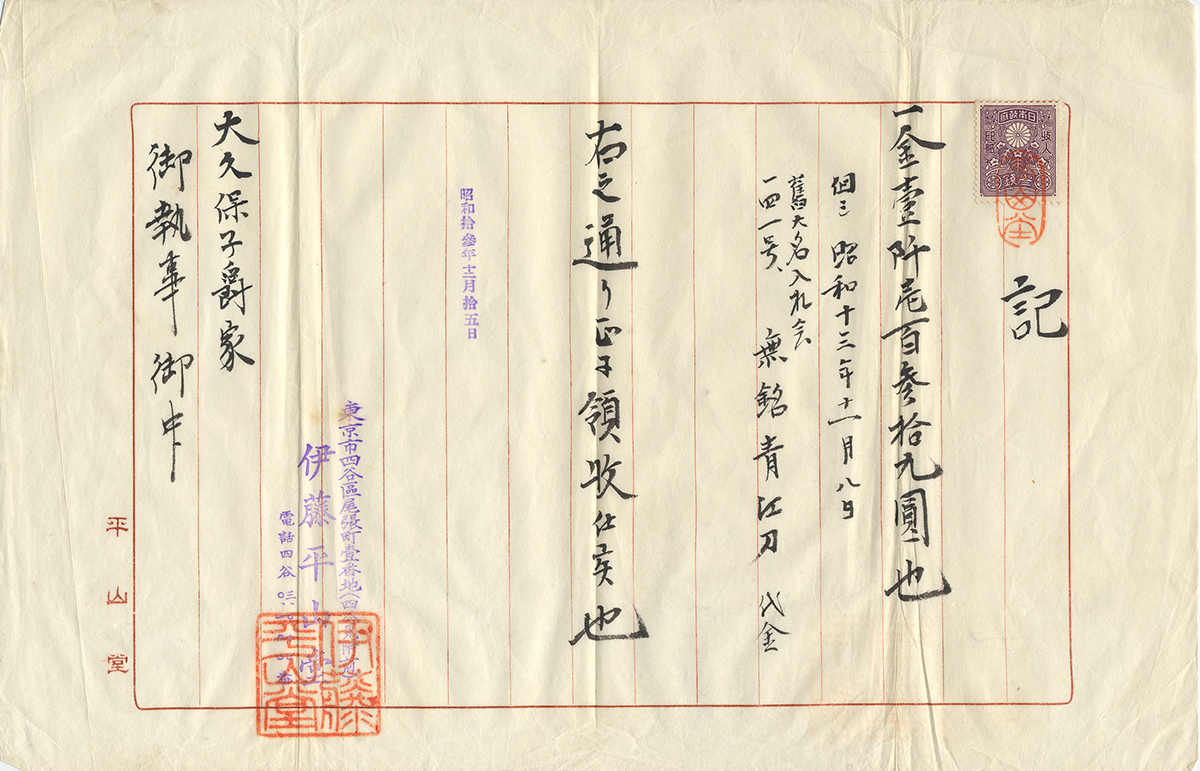 記
一金壹阡弐百参拾九圓也
但シ昭和十三年十一月八日
舊大名入札会
一四一号、無銘青江刀 代金
右之通り正ニ領收仕候也
昭和拾參年十二月拾五日
東京市四谷區尾張町壹番地
伊藤平山堂
電話四谷
大久保子爵家
御執事御中
平山堂
伊藤
平山堂